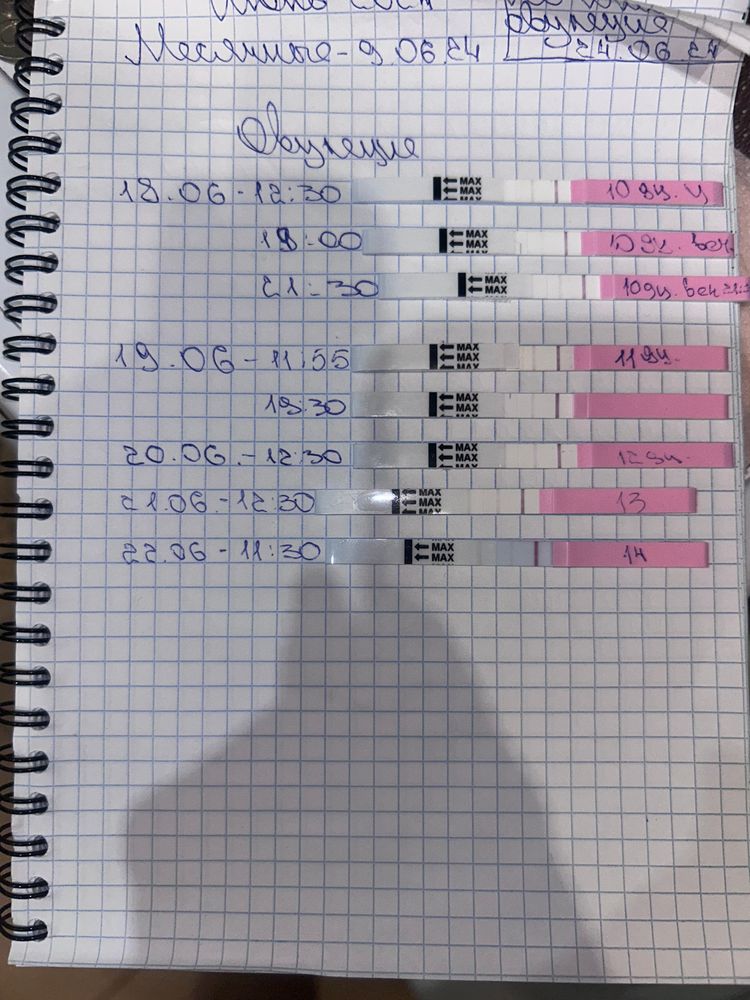 овуляция
Месячные - 9.06.24 24.06.24
Овуляция
18.06 - 12:30 MAX MAX MAX 10 дц. у
18:00 MAX MAX 10 дц. веч
21:30 MAX MAX 10 дц. веч
19.06 - 11:55 MAX MAX 11 дц.
19:30 MAX MAX
20.06. - 12:30 MAX MAX 12 дц.
21.06 - 12:30 MAX MAX MAX 13
22.06 - 11:30 MAX MAX 14